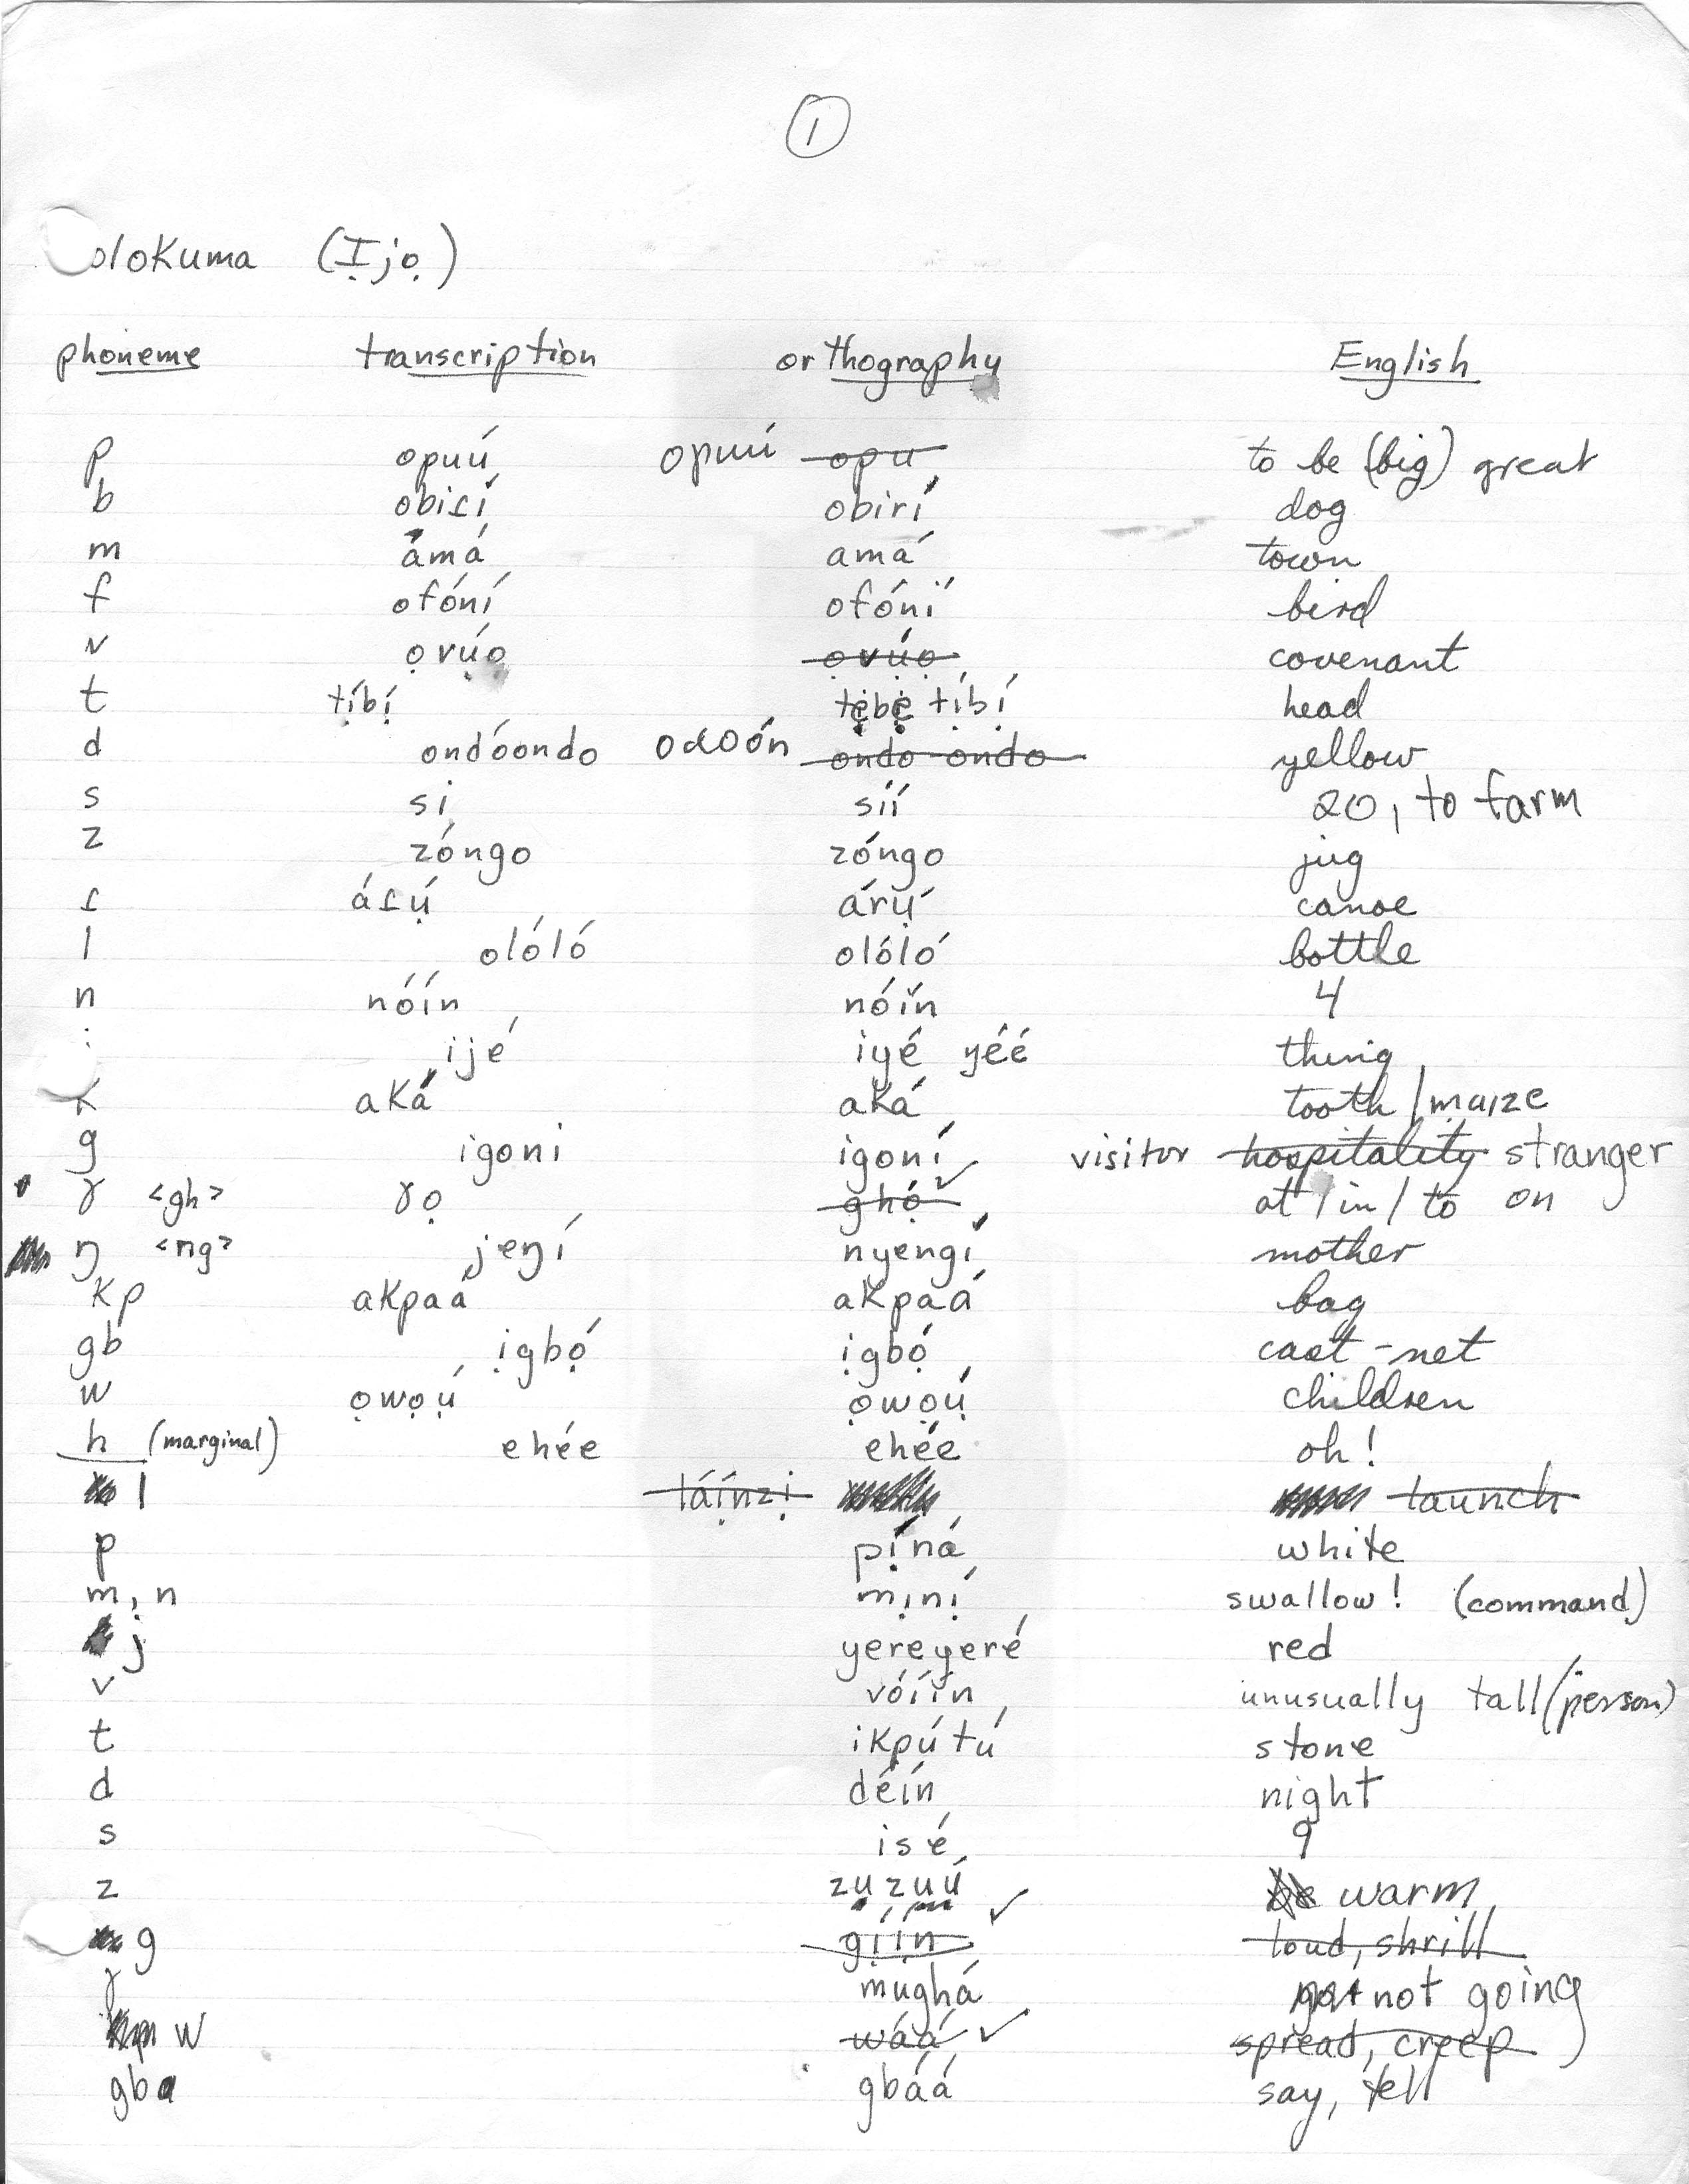 1
olokuma (Ịjọ)
phoneme transcription orthography English
p opuú opuú opu to be (big) great
b obiɾí obirí dog
m ámá amá town
f ofóní ofóní bird
v ọvụ́ọ ọvụ́ọ covenant
t tị́bị́ tẹbẹ tị́bị́ head
d ondóondo odoón ondo ondo yellow
s si síí 20, to farm
z zóngo zóngo jug
ɾ áɾụ́ árụ́ canoe
l olóló olóló bottle
n nóín nóín 4
ijé iyé yéé thing
k aká aká tooth / maize
g igoni igoní visitor hospitality stranger
ɣ <gh> ɣọ ghọ́ at / in / to on
ŋ <ng> jeŋí nyengí mother
kp akpaá akpaá bag
gb ịgbọ́ ịgbọ́ cast-net
w ọwọụ́ ọwọụ́ children
h (marginal) ehée ehée oh!
l táị́nzị launch
p pị́ná white
m, n mịnị́ swallow! (command)
j yereyeré red
v vóíín unusually tall (person)
t ikpútú stone
d déín night
s isé 9
z zụzụụ́ be warm
g gị́ị́n loud, shrill
ɣ mụghá not going
w wáá spread, creep
gb gbáá say, tell